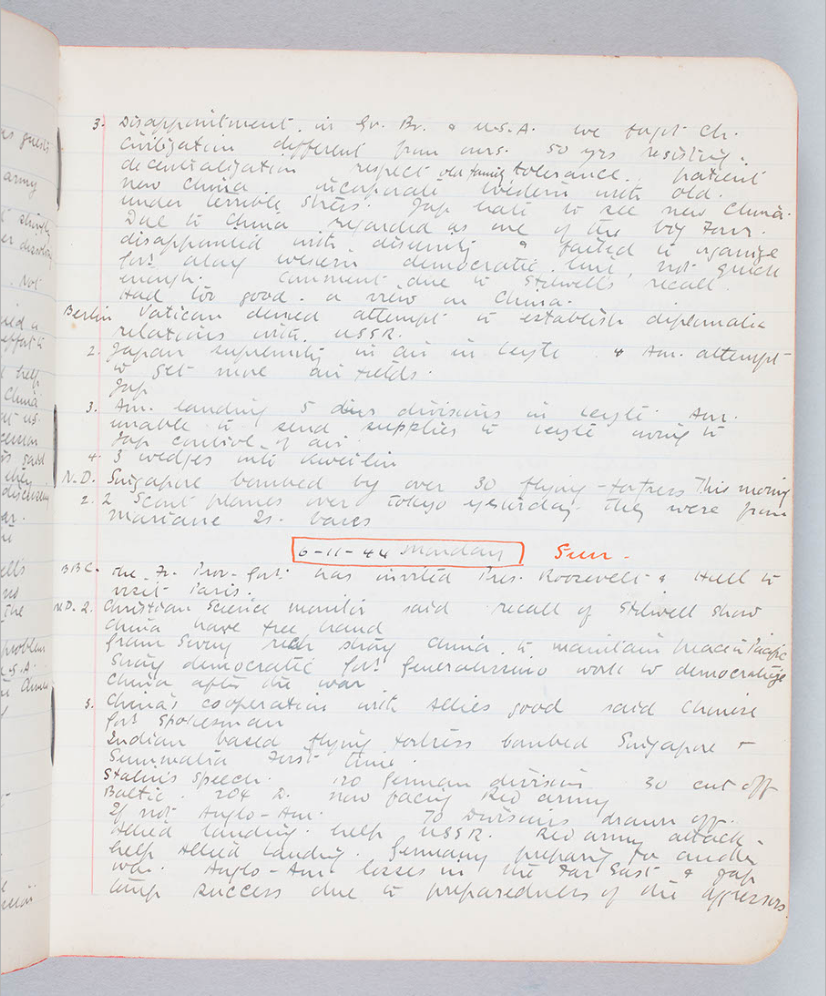 3. Disappointment in Gr. Br. & U.S.A. we forget Ch.
Civilization different from ours. 50 yrs resisting.
decentralization respect old family tolerance. patient
new China. incorporate Western with old.
under terrible stress. Jap hate to see new China.
Due to China regarded as one of the big Four.
disappointed with disunity & failed to organize
Gvt along western democratic line, not quick
enough. Comment due to Stilwell's recall.
Had too good a view on China.
Berlin Vatican denied attempt to establish diplomatic
relations with USSR.
2. Japan supremity in air in Leyte & Am. attempt
to get more air fields.
Jap
3. Am. landing 5 divisions in Leyte. Am.
unable to send supplies to Leyte owing to
Jap control of air.
4. 3 wedges into Kweilin
N.D. Singapore bombed by over 30 flying-fortress This morning
2. 2 Scout planes over Tokyo yesterday. they were from
Mariane Is. bases
6-11-44 Monday Sun.
BBC. The Fr. Prov. Gvt. has invited Pres. Roosevelt & Hull to
visit Paris.
N.D. 2. Christian Science monitor said recall of Stilwell show
China have free hand
from Swing rich strong China to maintain peace in Pacific
strong democratic Gvt Generalissimo work to democratize
China after the war
3. China's cooperation with Allies good said Chinese
Gvt Spokesman
Indian based flying fortress bombed Singapore &
Summatra First time.
Stalin's speech. 120 German divisions. 30 cut off
Baltic. 204 D. now facing Red army
If not Anglo-Am. 70 Divisions drawn off.
Allied landing help USSR. Red army attack
help Allied landing. Germany preparing for another
war. Anglo-Am losses in the Far East & Jap
temp success due to preparedness of the aggressors.